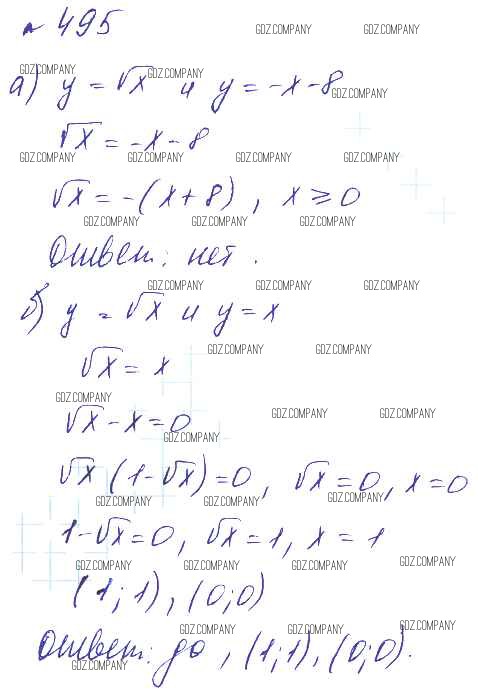 № 495
GDZ.COMPANY GDZ.COMPANY
GDZ.COMPANY GDZ.COMPANY
а) y = √x и y = -x - 8
GDZ.COMPANY
√x = -x - 8
GDZ.COMPANY GDZ.COMPANY GDZ.COMPANY GDZ.COMPANY
√x = -(x + 8), x ≥ 0
GDZ.COMPANY GDZ.COMPANY GDZ.COMPANY
Ответ: нет.
GDZ.COMPANY GDZ.COMPANY GDZ.COMPANY
б) y = √x и y = x
GDZ.COMPANY GDZ.COMPANY
√x = x
GDZ.COMPANY
√x - x = 0
GDZ.COMPANY GDZ.COMPANY
GDZ.COMPANY
√x (1 - √x) = 0, √x = 0, x = 0
GDZ.COMPANY GDZ.COMPANY GDZ.COMPANY
1 - √x = 0, √x = 1, x = 1
GDZ.COMPANY GDZ.COMPANY GDZ.COMPANY GDZ.COMPANY
(1; 1), (0; 0)
GDZ.COMPANY GDZ.COMPANY GDZ.COMPANY
Ответ: да, (1; 1), (0; 0).
GDZ.COMPANY